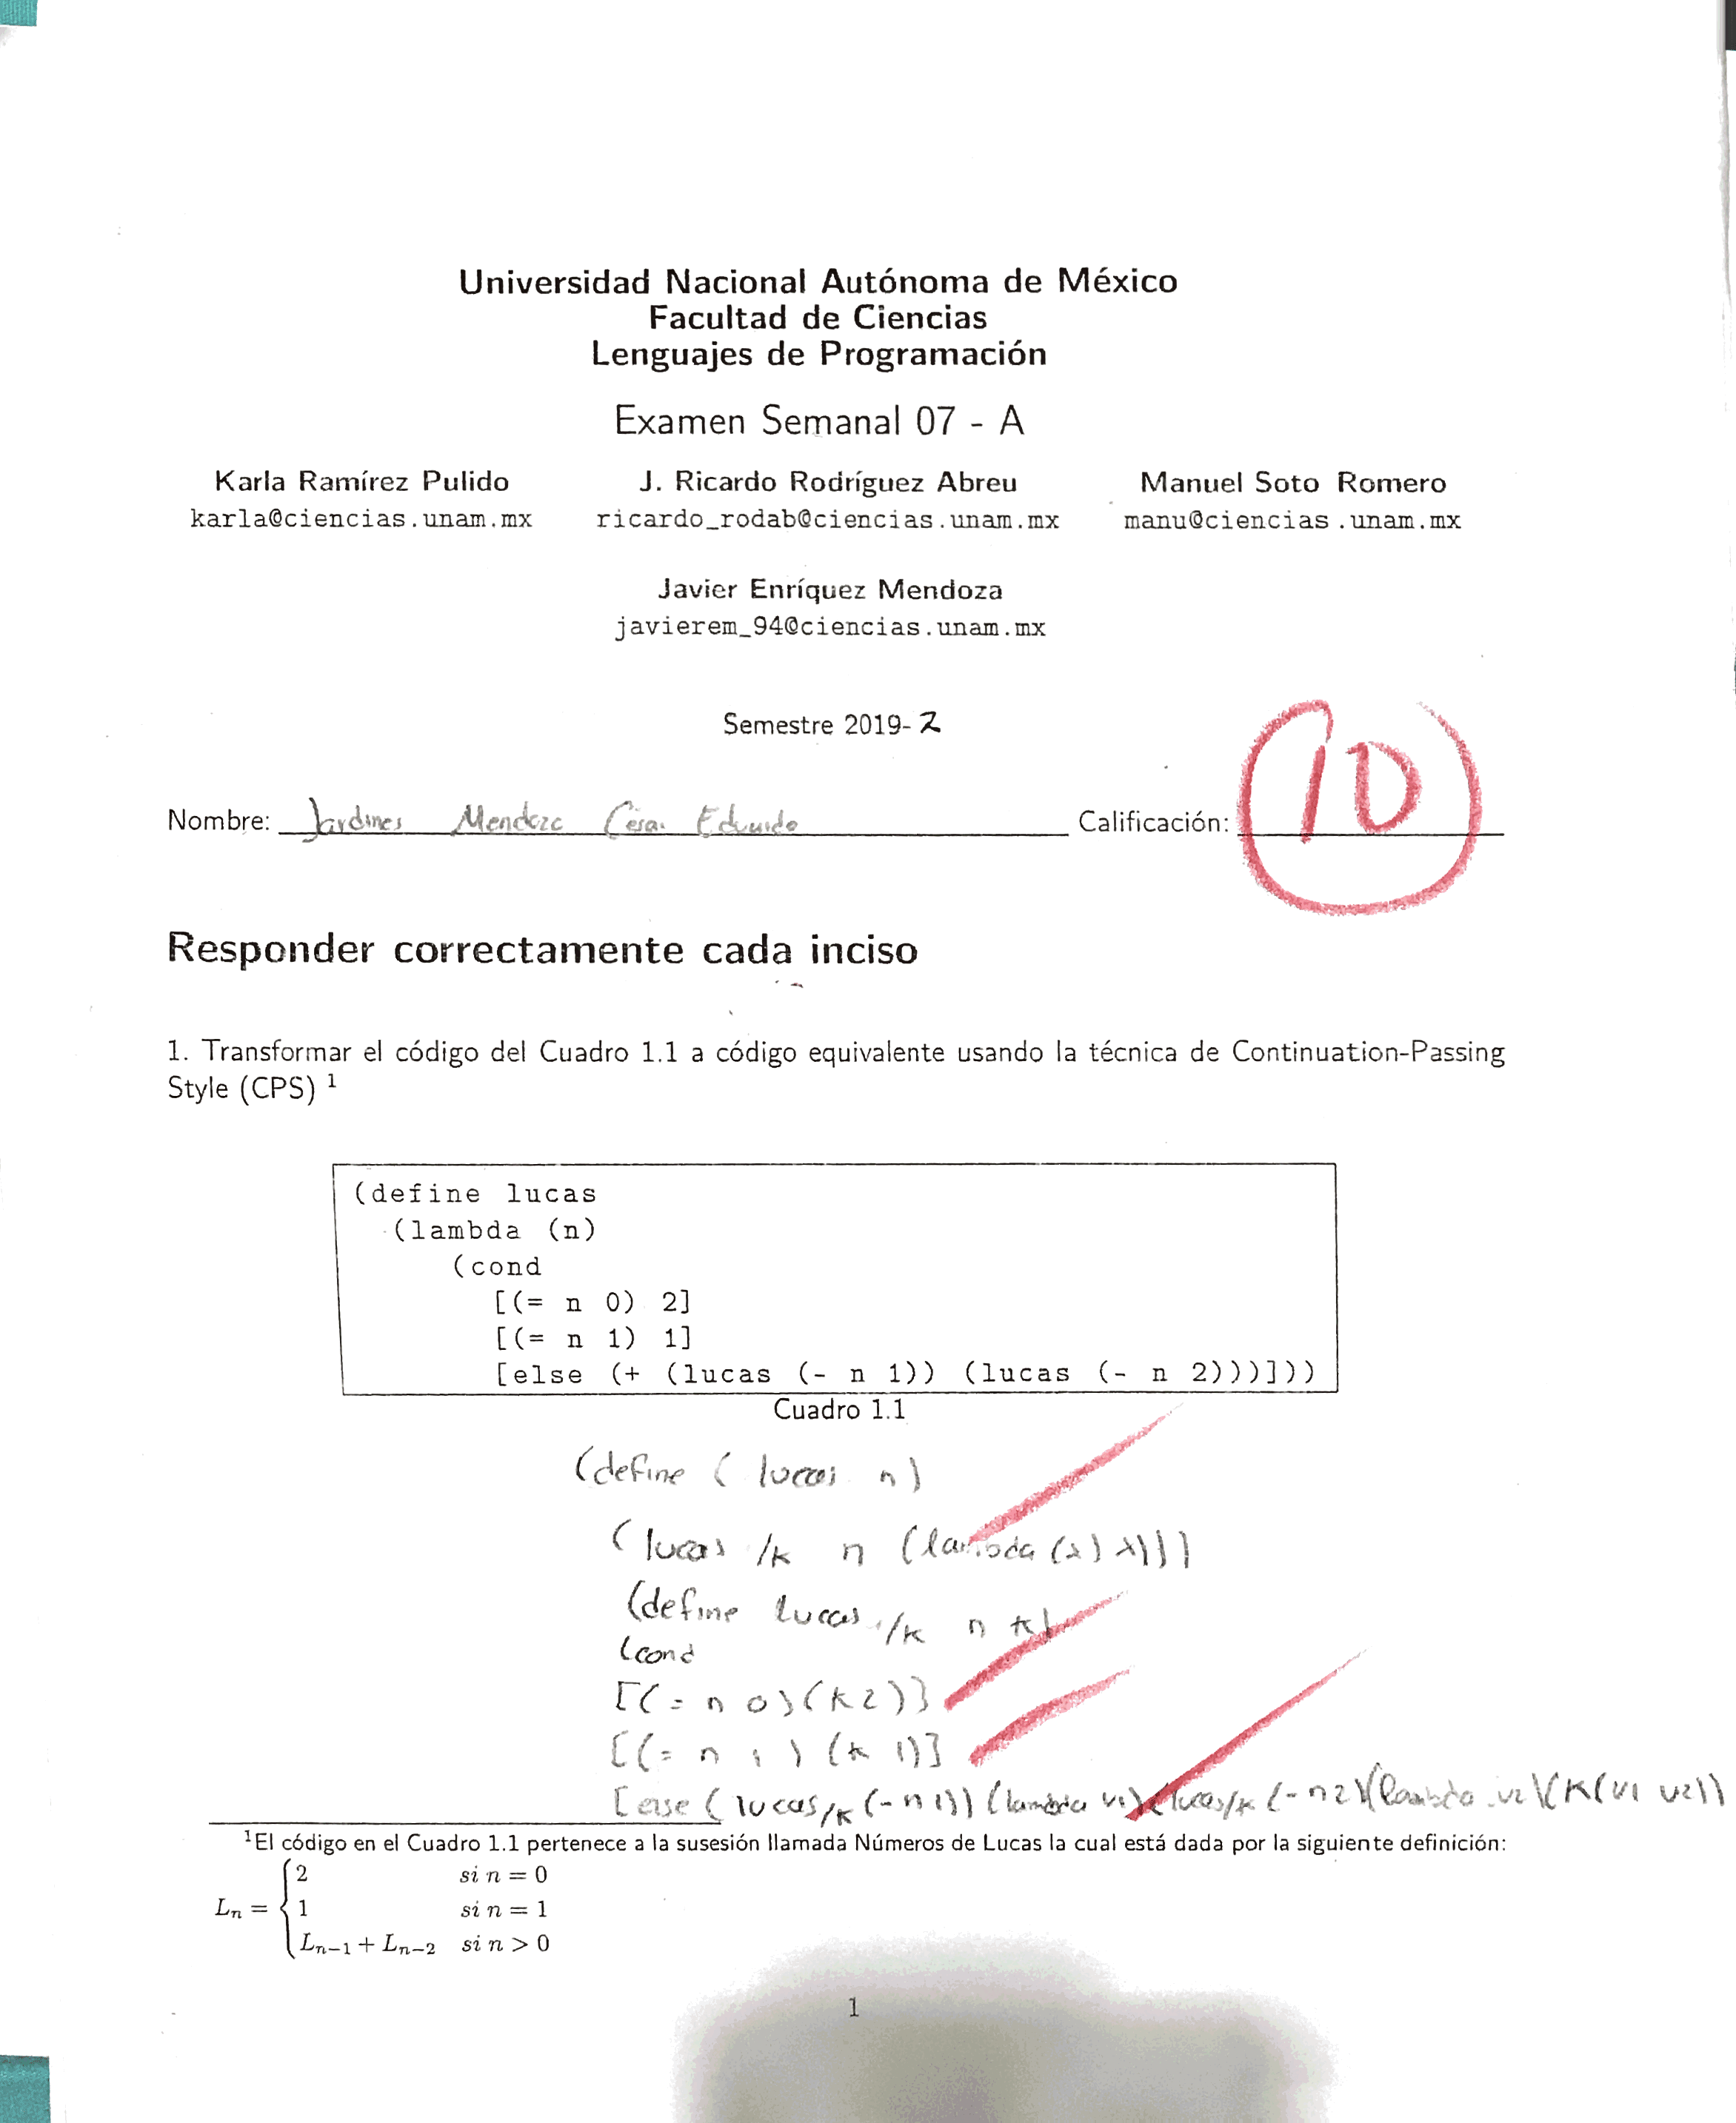 Universidad Nacional Autónoma de México
Facultad de Ciencias
Lenguajes de Programación
Examen Semanal 07 - A
Karla Ramírez Pulido J. Ricardo Rodríguez Abreu Manuel Soto Romero
karla@ciencias.unam.mx ricardo_rodab@ciencias.unam.mx manu@ciencias.unam.mx
Javier Enríquez Mendoza
javierem_94@ciencias.unam.mx
Semestre 2019-2
Nombre: Jardines Mendoza César Eduardo Calificación: 10
Responder correctamente cada inciso
1. Transformar el código del Cuadro 1.1 a código equivalente usando la técnica de Continuation-Passing
Style (CPS) 1
(define lucas
(lambda (n)
(cond
[(= n 0) 2]
[(= n 1) 1]
[else (+ (lucas (- n 1)) (lucas (- n 2)))]))
Cuadro 1.1
(define ( lucas n)
(lucas /k n (lambda (x) x)))
(define lucas /k n k)
(cond
[(= n 0) (k 2)]
[(= n 1) (k 1)]
[else (lucas/k (- n 1)) (lambda v1) (lucas/k (- n 2) (lambda v2) (K (v1 v2))
1El código en el Cuadro 1.1 pertenece a la susesión llamada Números de Lucas la cual está dada por la siguiente definición:
2 si n = 0
Ln = { 1 si n = 1
Ln−1 + Ln−2 si n > 0
1